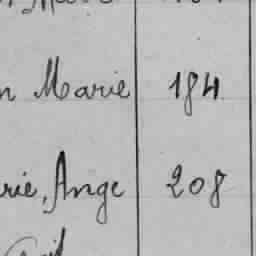 n Marie 184
rie, Ange 208